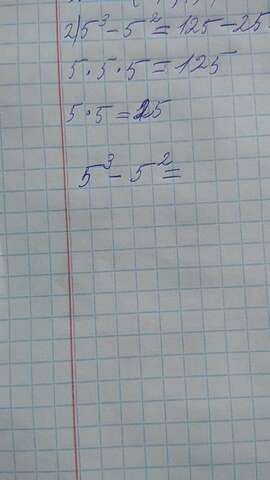 2) 5³ - 5² = 125 - 25
5 · 5 · 5 = 125
5 · 5 = 25
5³ - 5² =